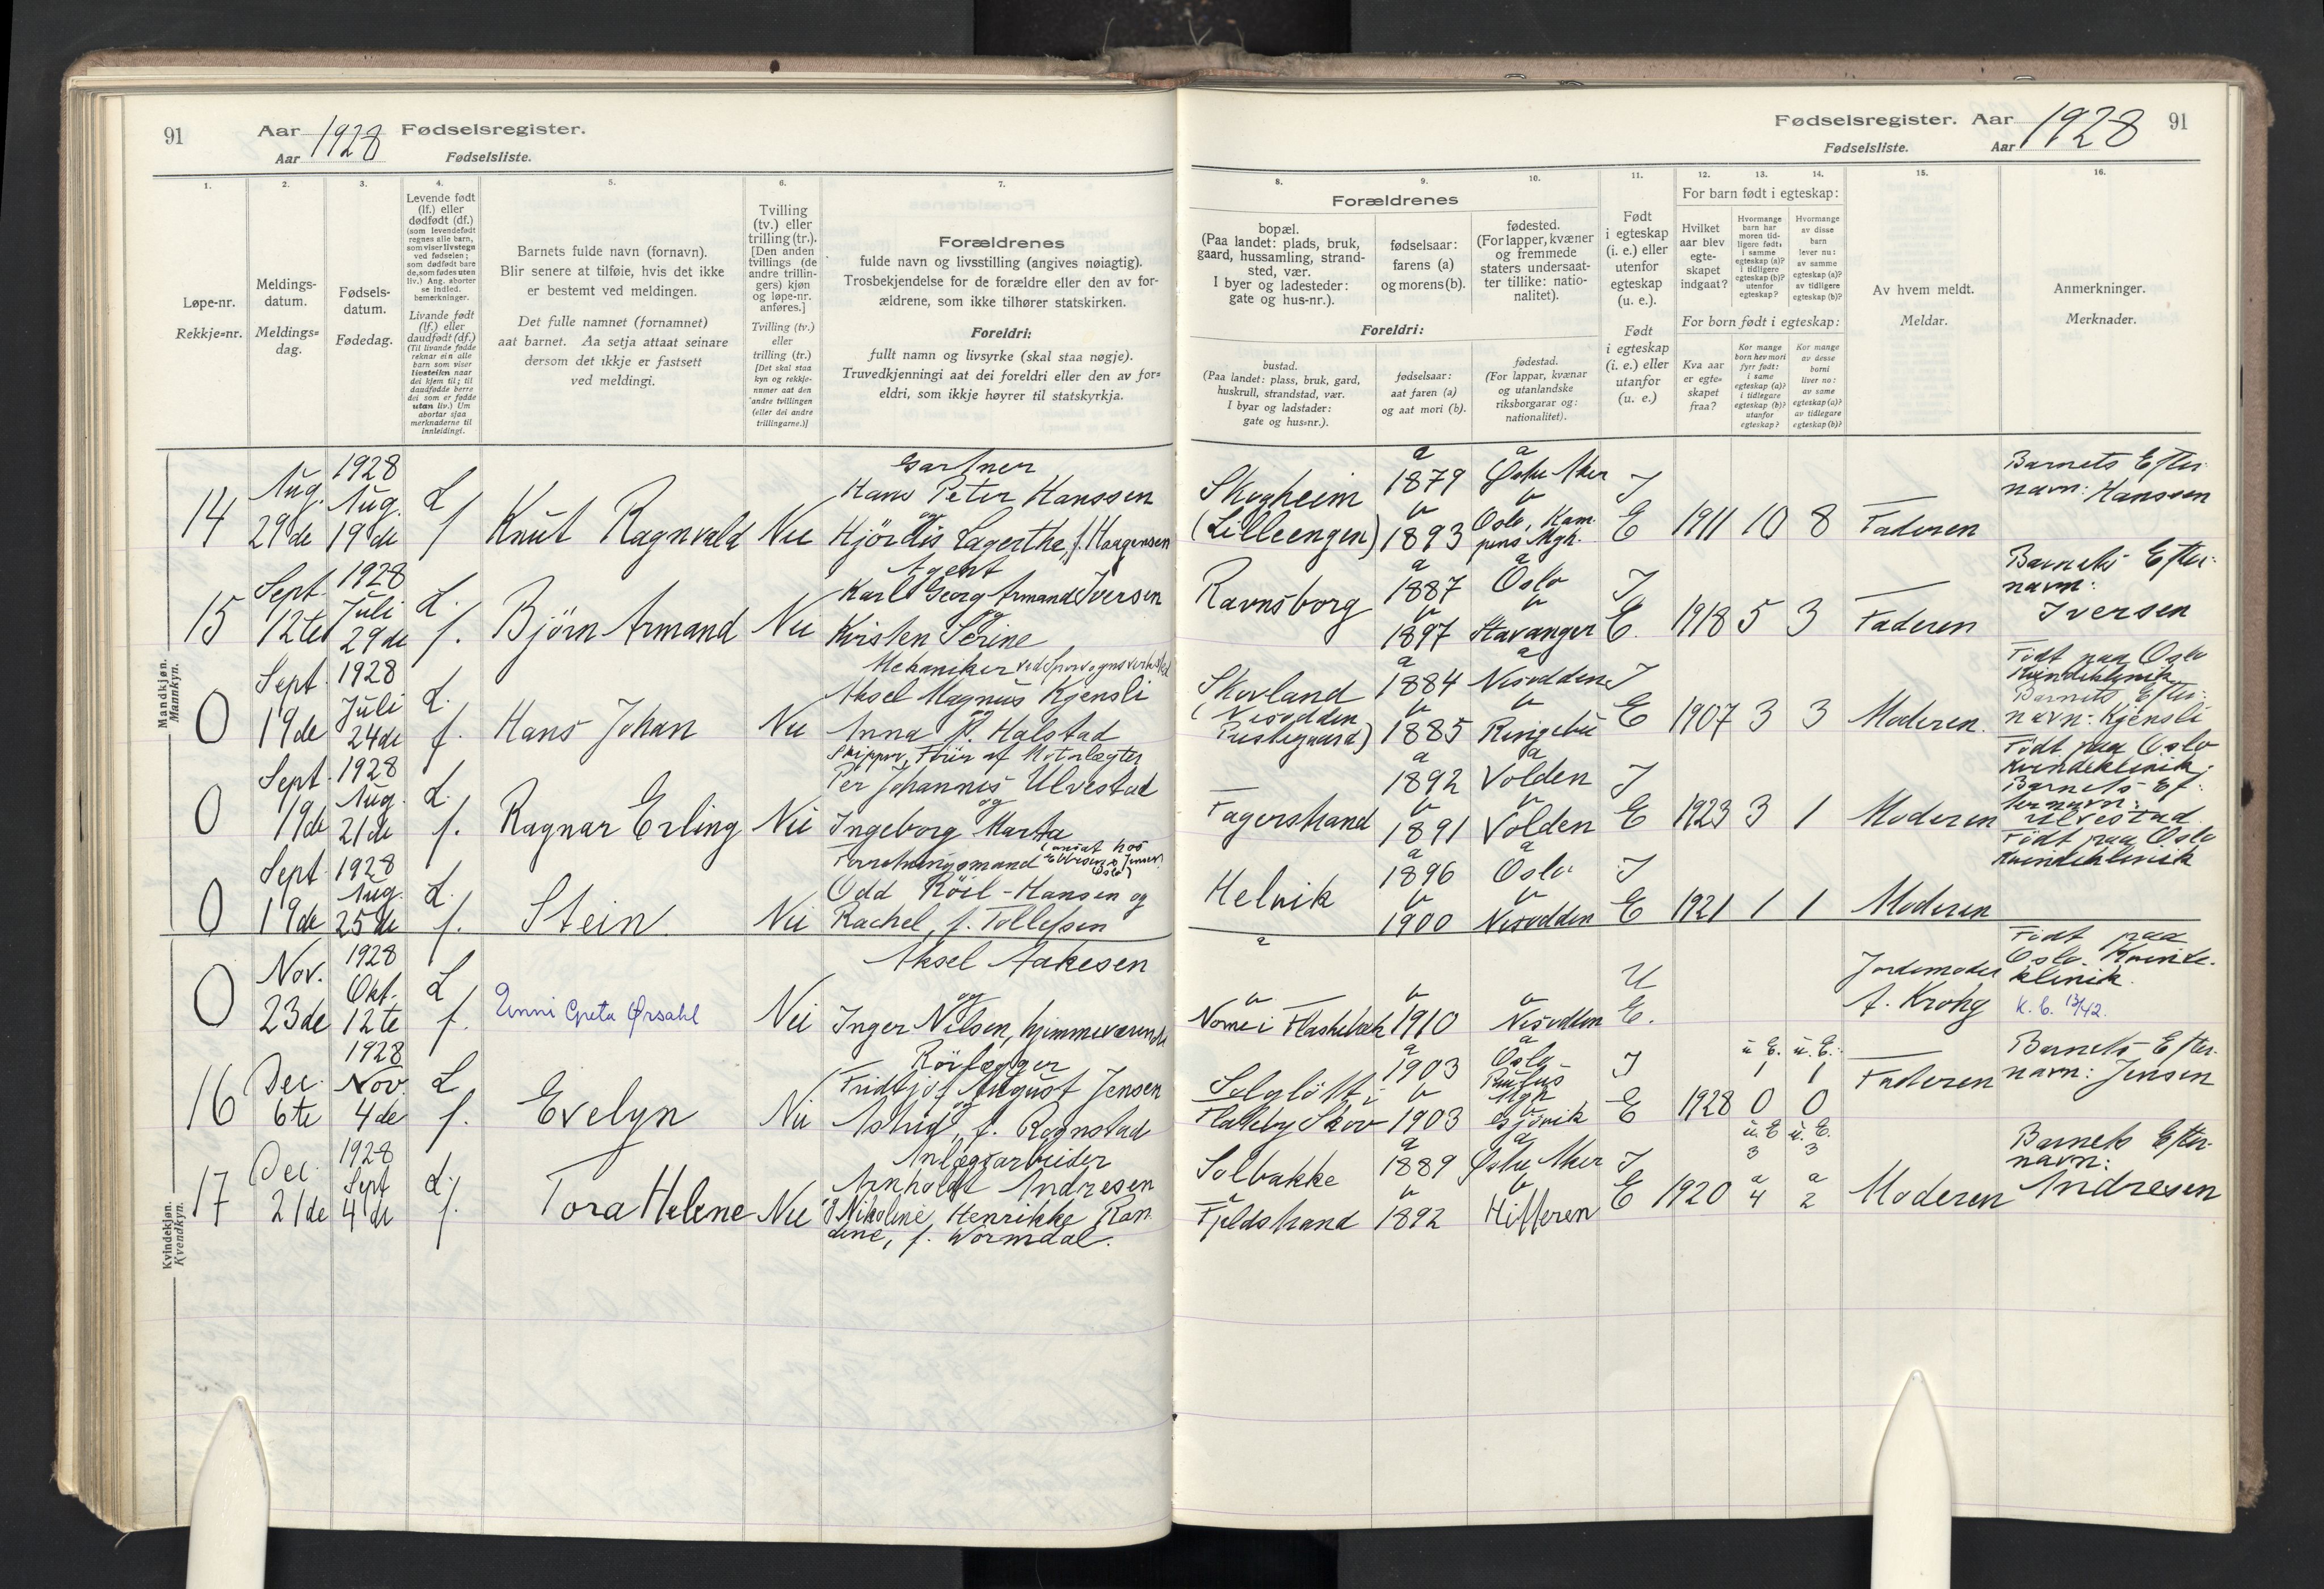 91
Aar 1928 Fødselsregister.
Aar Fødselsliste.
1.
2.
3.
4.
5.
6.
7.
Løpe-nr.
Rekkje=nr.
Meldings-
datum.
Meldings=
dag.
Fødsels-
datum.
Fødedag.
Levende født
(lf.) eller
dødfødt (df.)
(som levendefødt
regnes alle barn,
som viser livstegn
ved fødselen;
som dødfødt bare
de, som fødes uten
liv.) Ang. aborter
se indled.
bemerkninger.
Livande født
(lf.) eller
daudfødt (df.)
(Til livande fødde
reknar ein alle
barn som viser
livsteikn naar
dei kjem til; til
daudfødde berre
dei som er fødde
utan liv.) Um
abortar sjaa
merknaderne til
innleidingi.
Barnets fulde navn (fornavn).
Blir senere at tilføie, hvis det ikke
er bestemt ved meldingen.
Det fulle namnet (fornamnet)
aat barnet. Aa setja attaat seinare
dersom det ikkje er fastsett
ved meldingi.
Tvilling
(tv.) eller
trilling (tr.).
[Den anden
tvillings (de
andre trillin-
gers) kjøn
og løpe-nr.
anføres.]
Tvilling (tv.)
eller
trilling (tr.)
[Det skal staa
kyn og rekkje-
nummer aat den
andre tvillingen
(eller dei andre
trillingarne.)]
Forældrenes
fulde navn og livsstilling (angives nøiagtig).
Trosbekjendelse for de forældre eller den av for-
ældrene, som ikke tilhører statskirken.
Foreldri:
fullt namn og livsyrke (skal staa nøgje).
Truvedkjenningi aat dei foreldri eller den av for=
eldri, som ikkje høyrer til statskyrkja.
Mandkjøn.
Mannkyn.
14
Aug.
29de
1928
Aug.
19de
L
f
Knut Ragnvald
Nei
Gartner
Hans Peter Hanssen
og
Hjördis Lagertha, f. Haagensen
15
Sept.
12te
1928
Juli
29de
L.
f.
Björn Armand
Nei
Agent
Karl Georg Armand Iversen
og
Kirsten Serine
0
Sept.
19de
1928
Juli
24de
L.
f.
Hans Johan
Nei
Mekaniker ved Sporvognsverksted
Aksel Magnus Kjensli
Anna P. Halstad
0
Sept.
19de
1928
Aug.
21de
L.
f.
Ragnar Erling
Nei
Skipper, Förer af Motorlægter
Per Johannes Ulvestad
og
Ingeborg Marta
0
Sept.
19de
1928
Aug.
25de
L.
f.
Stein
Nei
Forretningsmand (ansat hos
Oslo)
Odd Röil-Hansen og
Rachel, f. Tollefsen
Kvindekjøn.
Kvendkyn.
0
Nov.
23de
1928
Okt.
12te
L
f.
Unni Greta Ørsahl
Nei
Aksel Aakesen
og
Inger Nilsen, hjemmeværende
16
Dec.
6te
1928
Nov.
4de
L
f.
Evelyn
Nei
Rörlægger
Fridtjof August Jensen
og
Astrid, f. Rognstad
17
Dec.
21de
1928
Sept
4de
L.
f.
Tora Helene
Nei
Anlægsarbeider
Arnholdt Andresen
og Nikoline Henrikke Ran
dine, f. Wormdal.
Fødselsregister. Aar 1928 91
Fødselsliste. Aar
8.
9.
10.
11.
12.
13.
14.
15.
16.
Forældrenes
bopæl.
(Paa landet: plads, bruk,
gaard, hussamling, strand-
sted, vær.
I byer og ladesteder:
gate og hus-nr.).
fødselsaar:
farens (a)
og morens (b).
fødested.
(For lapper, kvæner
og fremmede
staters undersaat-
ter tillike: natio-
nalitet).
Foreldri:
bustad.
(Paa landet: plass, bruk, gard,
huskrull, strandstad, vær.
I byar og ladstader:
gate og hus=nr.).
fødselsaar:
aat faren (a)
og aat mori (b).
fødestad.
(For lappar, kvænar
og utanlandske
riksborgarar og:
nationalitet).
Født
i egteskap
(i. e.) eller
utenfor
egteskap
(u. e.).
Født
i egteskap
(i. e.) eller
utanfor
(u. e.)
For barn født i egteskap:
Hvilket
aar blev
egte-
skapet
indgaat?
Hvormange
barn har
moren tid-
ligere født:
i samme
egteskap (a)?
i tidligere
egteskap (b)?
utenfor
egteskap?
Hvormange
av disse
barn
lever nu:
av samme
egteskap (a)?
av tidligere
egteskap (b)?
For born født i egteskap:
Kva aar
er egte=
skapet
fraa?
Kor mange
born hev mori
fyr født:
i same
egteskap (a)?
i tidlegare
egteskap (b)?
utanfor
egteskap?
Kor mange
av desse
borni
liver no:
av same
egteskap (a)?
av tidlegare
egteskap (b)?
Av hvem meldt.
Meldar.
Anmerkninger.
Merknader.
Skogheim
(Lilleengen)
a
1879
b
1893
a
Østre Aker
b
Oslo, Kam
pens Mgh.
I
E
1911
10
8
Faderen
Barnets Efter
navn: Hanssen
Ravnsborg
a
1887
b
1897
Oslo
b
Stavanger
I
E.
1918
5
3
Faderen
Barnets Efter:
navn:
Iversen
Skovland
(Nesodden
Prestegaard)
a
1884
b
1885
a
Nesodden
b
Ringebu
I
E
1907
3
3
Moderen.
Födt paa Oslo
Kvindeklinik
Barnets Efter:
navn: Kjensli
Fagerstrand
a
1892
b
1891
a
Volden
b
Volden
I
E
1923
3
1
Moderen
Födt paa Oslo
Kvindeklinik.
Barnets Ef:
ternavn:
Ulvestad
Helvik
a
1896
b
1900
a
Oslo
b
Nesodden
I
E
1921
1
1
Moderen
Födt paa Oslo
Kvindeklinik
a
b
Nome i Flaskebæk
b
1910
b
Nesodden
U
E.
Jordemoder
A. Krohg
Födt paa
Oslo. Kvinde-
klinik.
K. b. 13/42.
Solglött i
Flateby Skov
a
1903
b
1903
a
Oslo
Paulus
Mgh
b
Gjövik
I
E
1928
u. E.
1
0
u. E.
1
0
Faderen
Barnets Efter-
navn: Jensen
Solbakke
Fjeldstrand
a
1889
b
1892
a
Østre Aker
b
Hitteren
I
E
1920
u. E
3
a
4
u. E.
3
a
2
Moderen
Barnets Efter-
navn:
Andresen